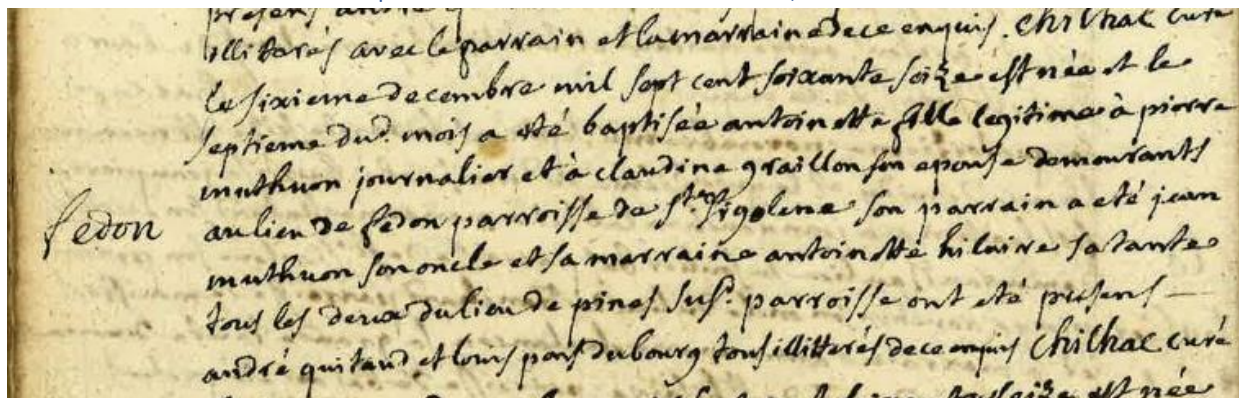 presens andré
illitarés avec le parrain et la marraine de ce enquis. Chilhac curé
Le sixieme decembre mil sept cent soixante seize est née et le
septieme dud. mois a eté baptisée antoinette fille legitime à pierre
muthuon journalier et à claudine graillon son epouse demeurants
fedon
au lieu de fedon parroisse de ste. Sigolene son parrain a eté jean
muthuon son oncle et sa marraine antoinette hilaire sa tante
tous les deux du lieu de pines susd. parroisse ont eté presens —
andré guitaud et louis pons du bourg tous illitterés de ce enquis Chilhac curé
est née